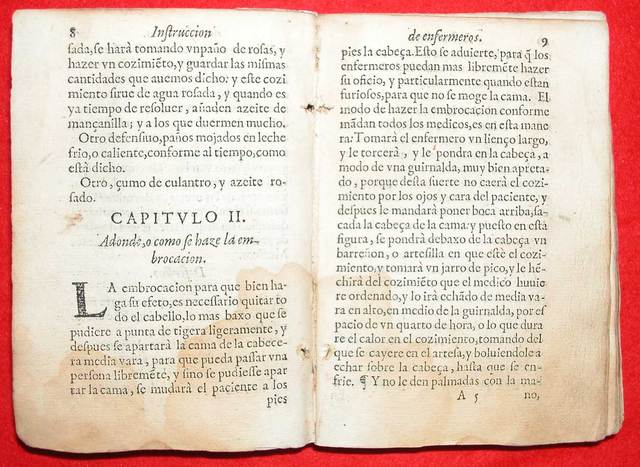 8 Instruccion
sada, se hará tomando vn paño de rosas, y
hazer vn cozimiẽto, y guardar las mismas
cantidades que auemos dicho: y este cozi
miento sirue de agua rosada, y quando es
ya tiempo de resoluer, añaden azeite de
mançanilla; y a los que duermen mucho.
Otro defensiuo, paños mojados en leche
frio, o caliente, conforme al tiempo, como
está dicho.
Otro, çumo de culantro, y azeite ro-
sado.
CAPITVLO II.
Adonde, o como se haze la em-
brocacion.
LA embrocacion para que bien ha-
ga su efeto, es necessario quitar to
do el cabello, lo mas baxo que se
pudiere a punta de tigera ligeramente, y
despues se apartará la cama de la cabece-
ra media vara, para que pueda passar vna
persona libremẽte, y sino se pudiesse apar
tar la cama, se mudará el paciente a los
pies
de enfermeros. 9
pies la cabeça. Esto se aduierte, para q̃ los
enfermeros puedan mas libremẽte hazer
su oficio, y particularmente quando estan
furiosos, para que no se moge la cama. El
modo de hazer la embrocacion conforme
mãdan todos los medicos, es en esta mane
ra: Tomará el enfermero vn lienço largo,
y le torcerá, y le pondra en la cabeça, a
modo de vna guirnalda, muy bien apreta-
do, porque desta suerte no caerá el cozi-
miento por los ojos y cara del paciente, y
despues le mandará poner boca arriba, sa-
cada la cabeça de la cama: y puesto en esta
figura, se pondrá debaxo de la cabeça vn
barreñon, o artesilla en que estè el cozi-
miento, y tomará vn jarro de pico, y le hẽ-
chirá del cozimiẽto que el medico huuie
re ordenado, y lo irá echãdo de media va-
ra en alto, en medio de la guirnalda, por es
pacio de vn quarto de hora, o lo que dura
re el calor en el cozimiento, tomando del
que se cayere en el artesa, y boluiendole a
echar sobre la cabeça, hasta que se en-
frie. ¶ Y no le den palmadas con la ma-
A 5 no,